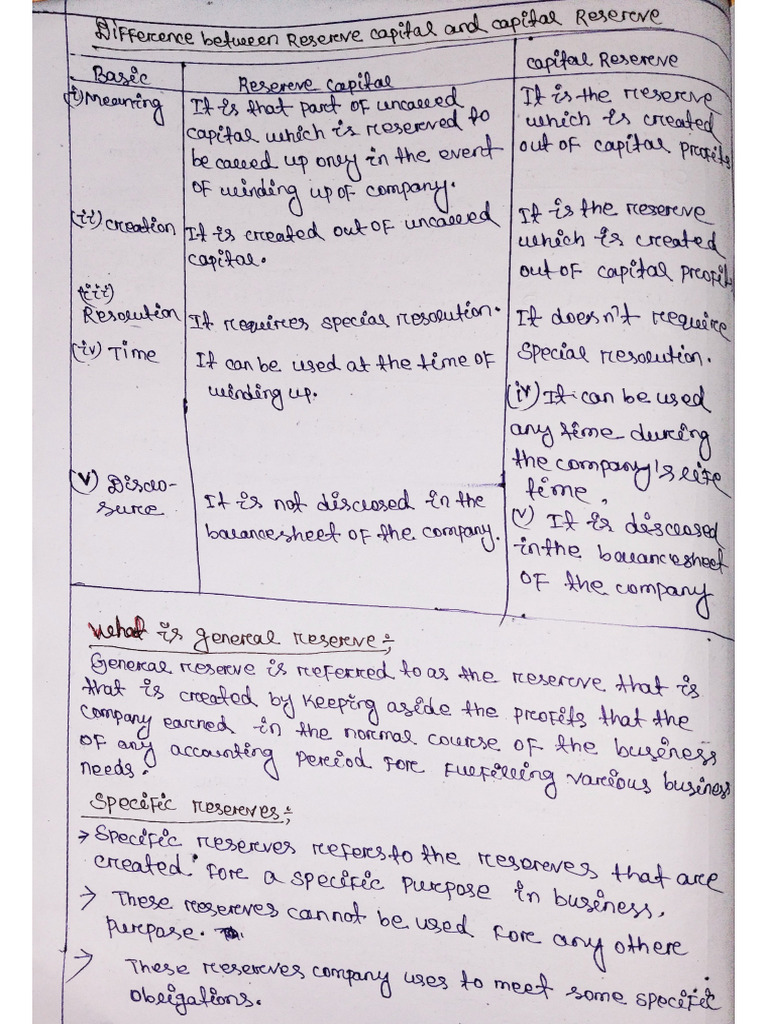 Difference between Reserve capital and capital Reserve
Basic
Reserve capital
capital Reserve
(i) Meaning
It is that part of uncalled
capital which is reserved to
be called up only in the event
of winding up of company.
It is the reserve
which is created
out of capital profits
(ii) creation
It is created out of uncalled
capital.
It is the reserve
which is created
out of capital profit
(iii)
Resolution
It requires special resolution.
It doesn't require
special resolution.
(iv) Time
It can be used at the time of
winding up.
(iv) It can be used
any time during
the company's life
time.
(v) Disclo-
sure
It is not disclosed in the
balancesheet of the company.
(v) It is disclosed
in the balancesheet
of the company
What is general reserve:-
General reserve is referred to as the reserve that is
that is created by keeping aside the profits that the
company earned in the normal course of the business
of any accounting period for fulfilling various business
needs.
Specific reserves:-
→ Specific reserves refers to the reserves that are
created for a specific purpose in business.
→ These reserves cannot be used for any other
purpose.
→ These reserves company uses to meet some specific
obligations.